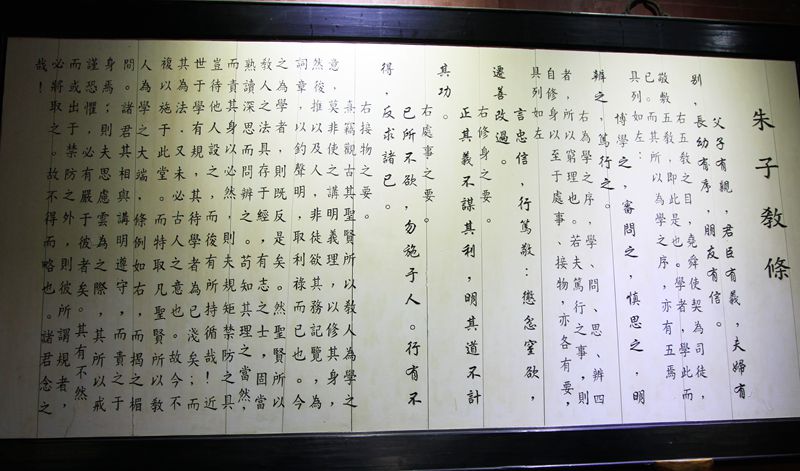 朱子教條
父子有親，君臣有義，夫婦有
別，長幼有序，朋友有信。
右五教之目，堯舜使契為司徒，
敬敷五教，即此是也。學者，學此而
已。而其所以為學之序，亦有五焉
具列如左：
博學之，審問之，慎思之，明
辨之，篤行之。
右為學之序，學、問、思、辨四
者，所以窮理也。若夫篤行之事，則
自修身以至于處事、接物，亦各有要，
具列如左
言忠信，行篤敬：懲忿窒欲，
遷善改過。
右修身之要。
正其義不謀其利，明其道不計
其功。
右處事之要。
己所不欲，勿施于人。行有不
得，反求諸己。
右接物之要。
熹竊觀古昔聖賢所以教人為學之
意，莫非使之講明義理，以修其身，
然後推以及人，非徒欲其務記覽，為
詞章，以釣聲明，取利祿而已也。今
之為學者，則既反是矣。然聖賢所以
教人之法，具存于經，有志之士，固當
熟讀深思而問辨之。苟知其理之當然，
而責其身以必然，則夫規矩禁防之具
豈待他人設之，而後有所持循哉！近
世于學有規，其待學者為已淺矣；而
其為法，又未必古人之意也。故今不
複以施于此堂。而特取凡聖賢所以教
人為學之大端，條例如右，而揭之楣
間。諸君其相與講明遵守，而責之于
身焉，則夫思慮雲為之際，其所以戒
謹恐懼，必有嚴于彼者矣。其有不然
而或出于禁防之外，則彼所謂規者，
必將取之，故不得而略也。諸君念之
哉！